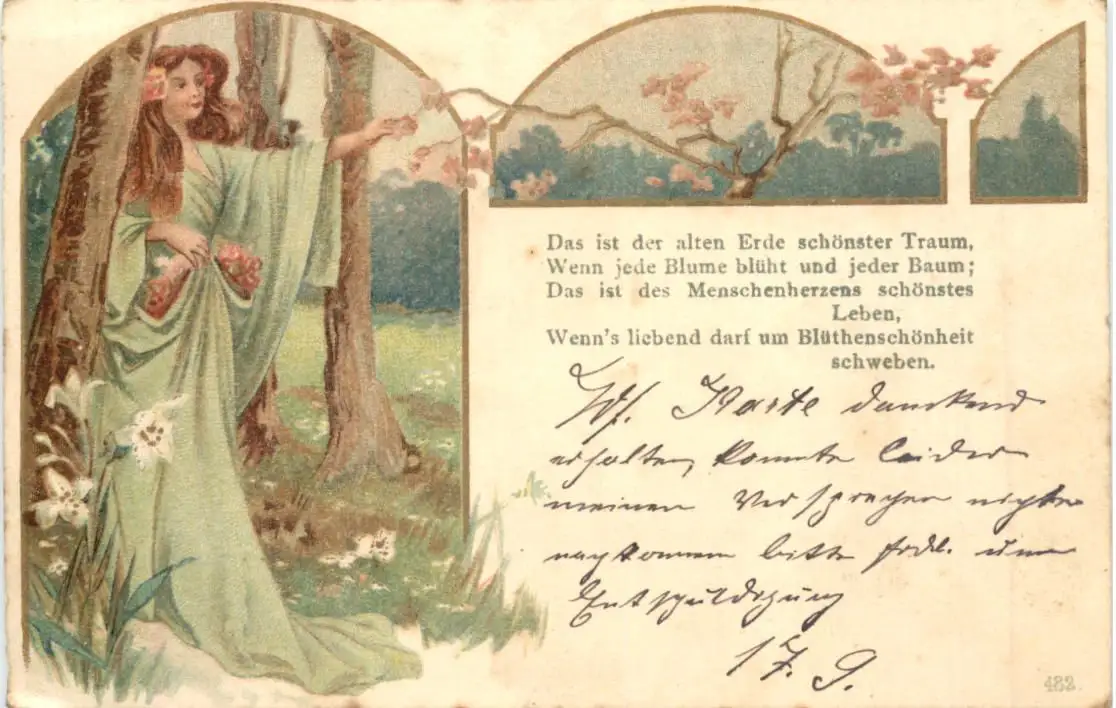 Das ist der alten Erde schönster Traum,
Wenn jede Blume blüht und jeder Baum;
Das ist des Menschenherzens schönstes
Leben,
Wenn's liebend darf um Blüthenschönheit
schweben.
W. Karte dankend
erhalten, konnte leider
meinen Versprechen nicht
nachkommen bitte frdl. um
Entschuldigung
17. 9.
482.